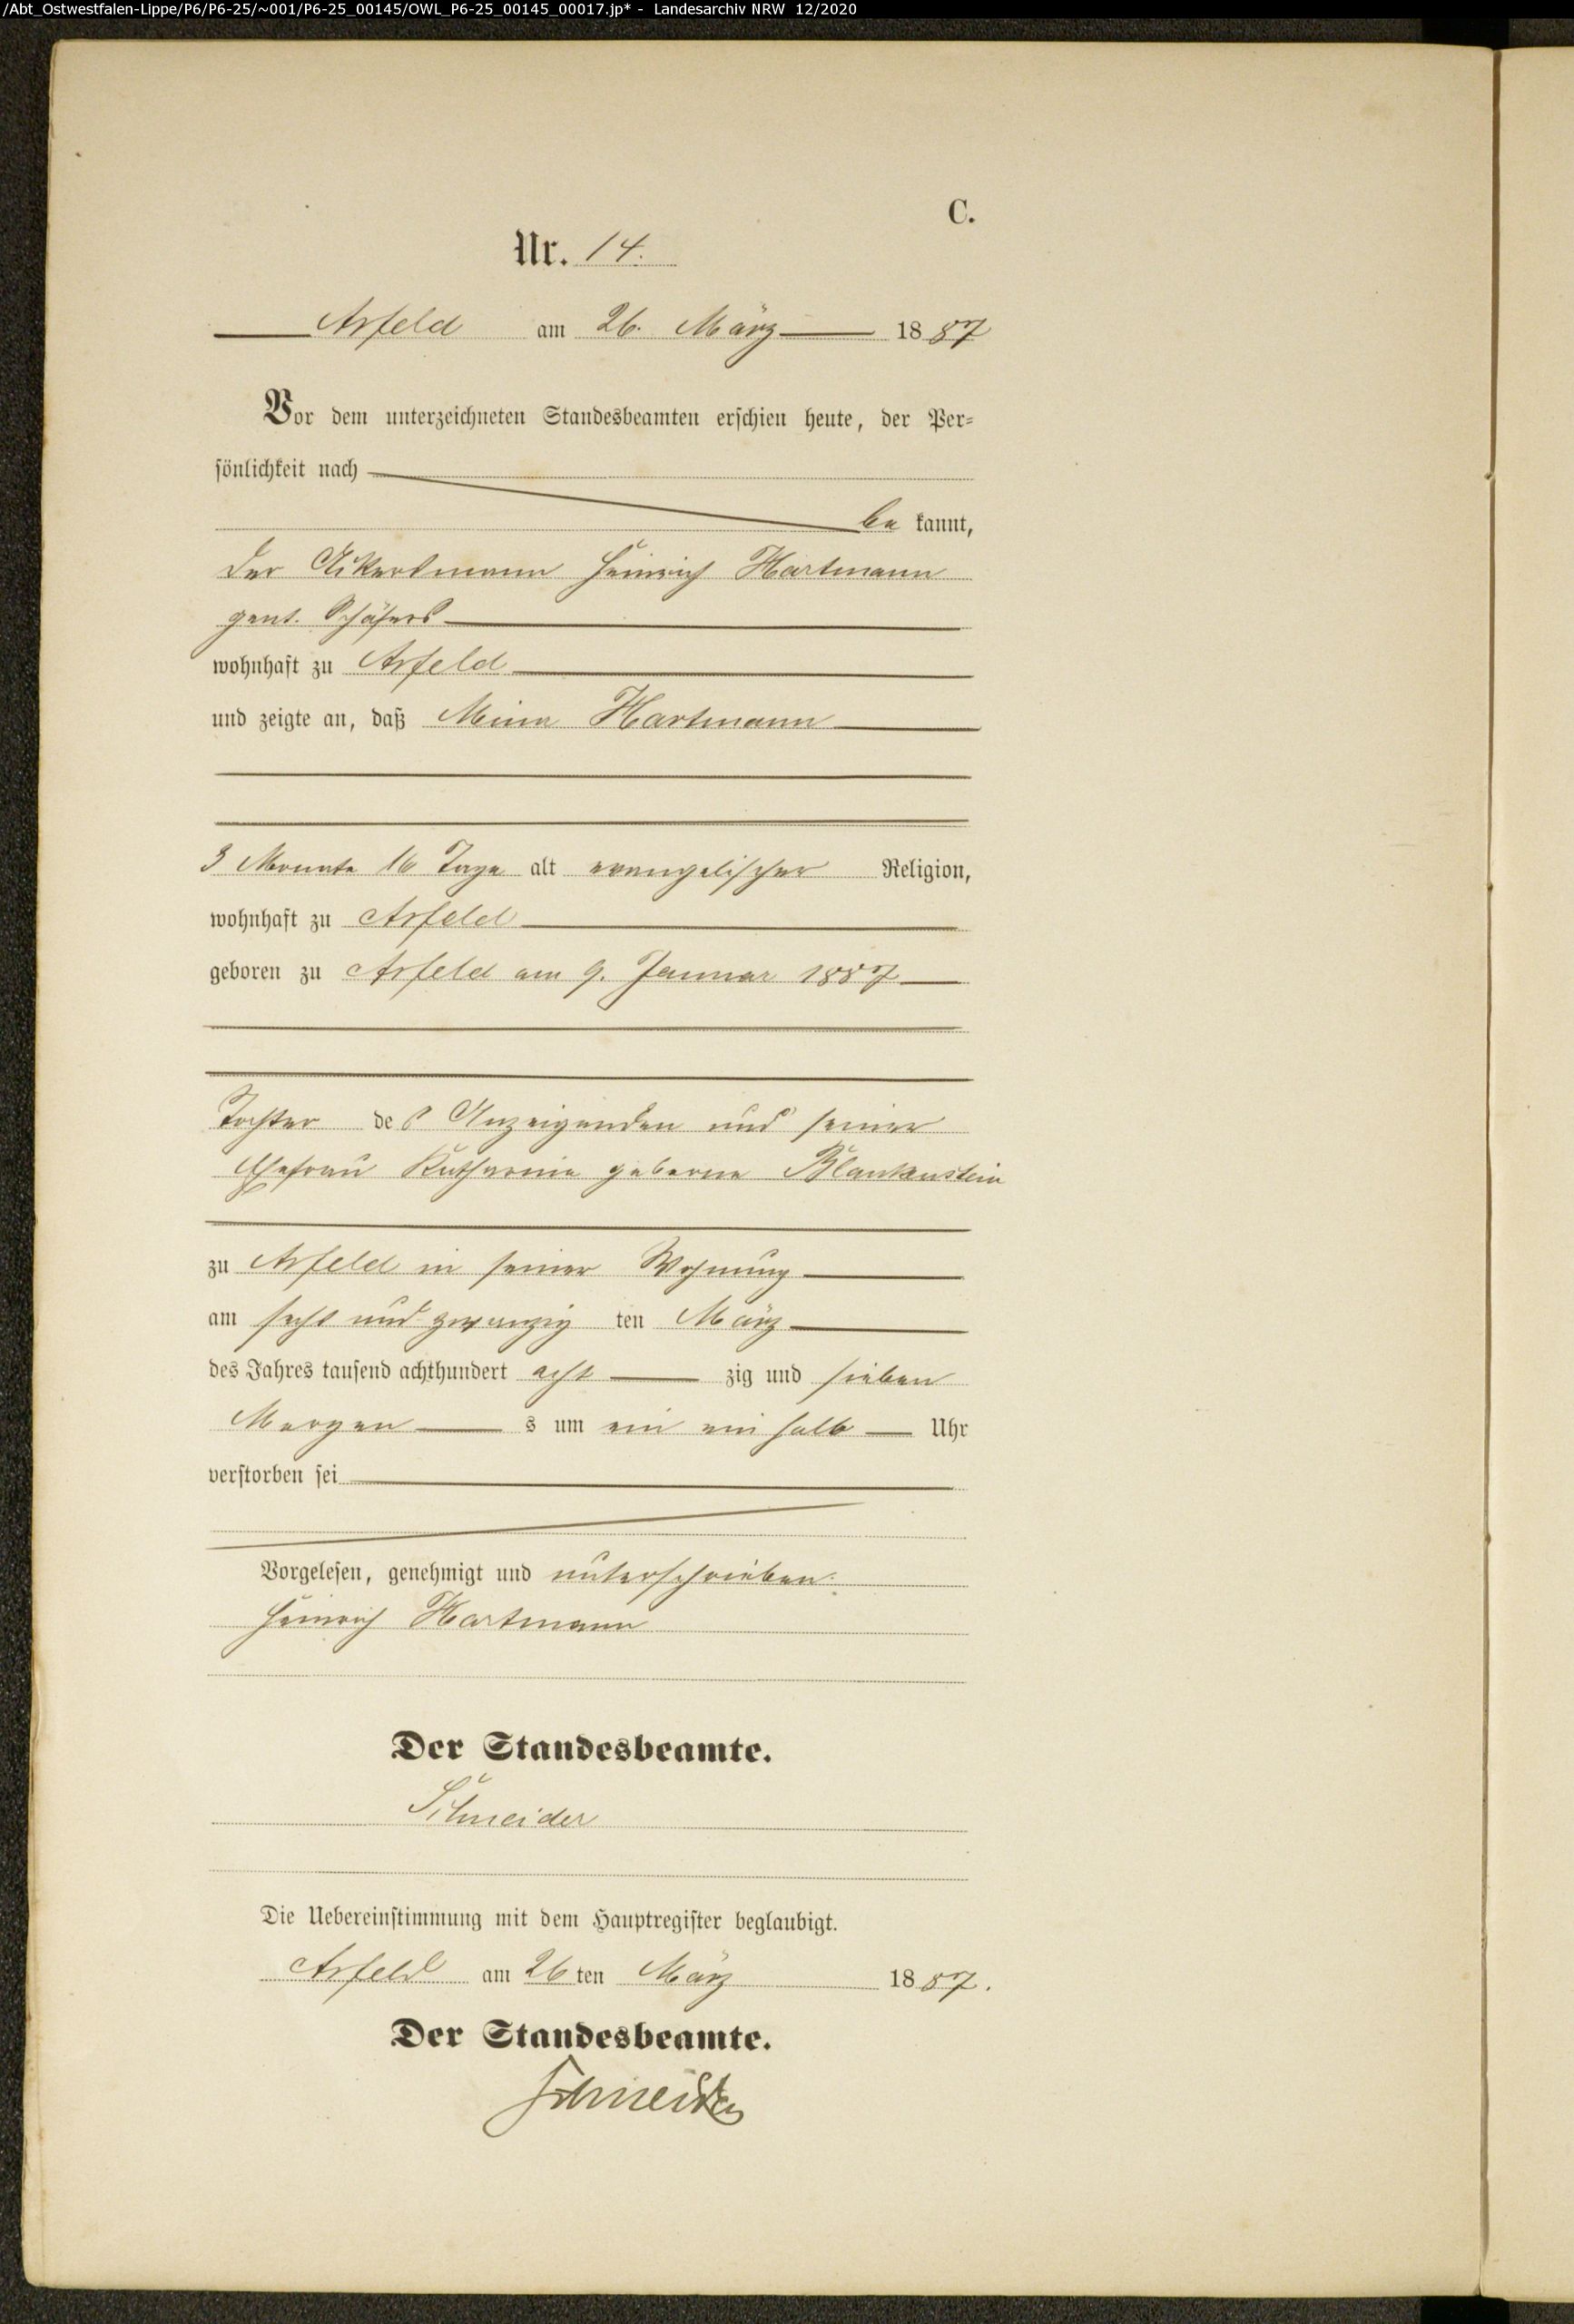 /Abt_Ostwestfalen-Lippe/P6/P6-25/~001/P6-25_00145/OWL_P6-25_00145_00017.jp* - Landesarchiv NRW 12/2020
C.
Nr. 14.
Arfeld am 26. März 1887
Vor dem unterzeichneten Standesbeamten erschien heute, der Per-
sönlichkeit nach
be kannt,
der Ackersmann Heinrich Hartmann
gent. Schäfers
wohnhaft zu Arfeld
und zeigte an, daß Mina Hartmann
3 Monate 16 Tage alt evangelischer Religion,
wohnhaft zu Arfeld
geboren zu Arfeld am 9. Januar 1887
Tochter des Anzeigenden und seiner
Ehefrau Katharine geborne Blankenstein
zu Arfeld in seiner Wohnung
am sechs und zwanzig ten März
des Jahres tausend achthundert acht zig und sieben
Morgen s um ein ein halb Uhr
verstorben sei
Vorgelesen, genehmigt und unterschrieben.
Heinrich Hartmann
Der Standesbeamte.
Schneider
Die Uebereinstimmung mit dem Hauptregister beglaubigt.
Arfeld am 26 ten März 1887.
Der Standesbeamte.
Schneider